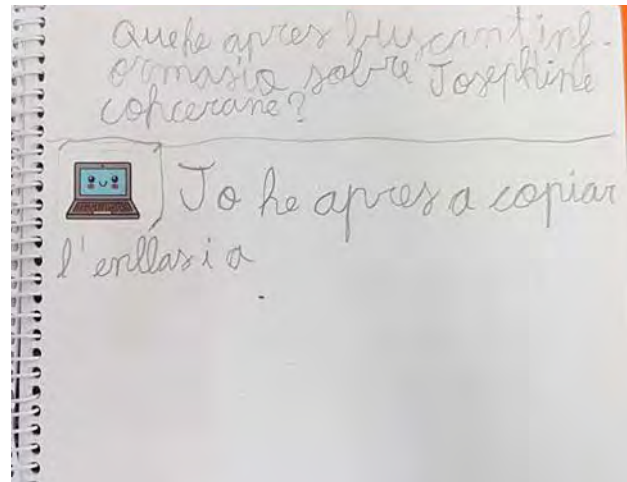 Quehe apres buscant inf-
ormasio sobre Josephine
cohcerane?
Jo he apres a copiar
l'enllas i a